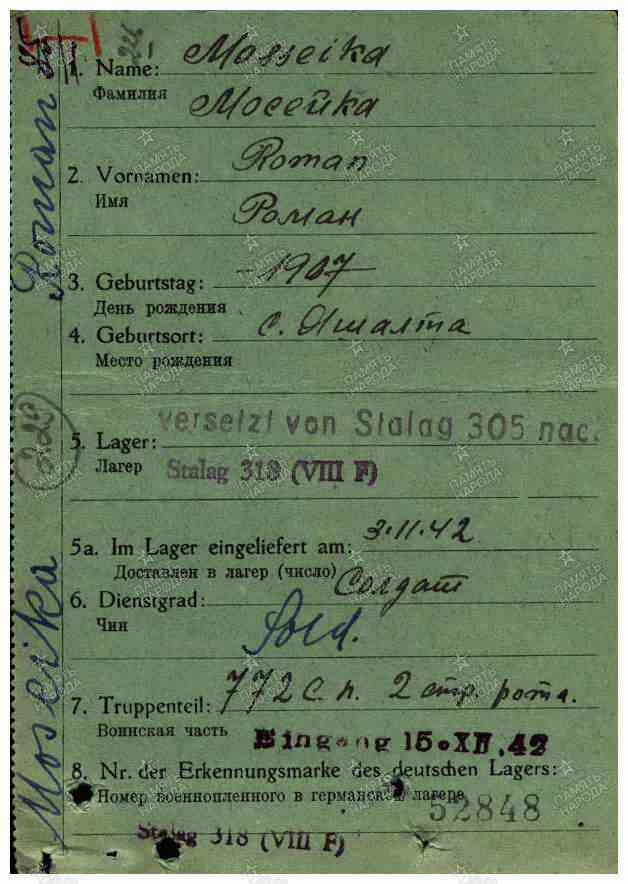 Roman
Moseika
226
1. Name: Mosseika
Фамилия Мосейка
2. Vornamen: Roman
Имя Роман
3. Geburtstag: – 1907 –
День рождения
4. Geburtsort: с. Яшалта
Место рождения
versetzt von Stalag 305 nac.
5. Lager:
Лагер Stalag 318 (VIII F)
5a. Im Lager eingeliefert am: 3.11.42
Доставлен в лагер (число)
6. Dienstgrad: Солдат
Чин Sold.
7. Truppenteil: 772 с. п. 2 стр. рота.
Воинская часть
Eingang 15. XII. 42
8. Nr. der Erkennungsmarke des deutschen Lagers:
Номер военнопленного в германском лагере
52848
Stalag 318 (VIII F)
ПАМЯТЬ НАРОДА